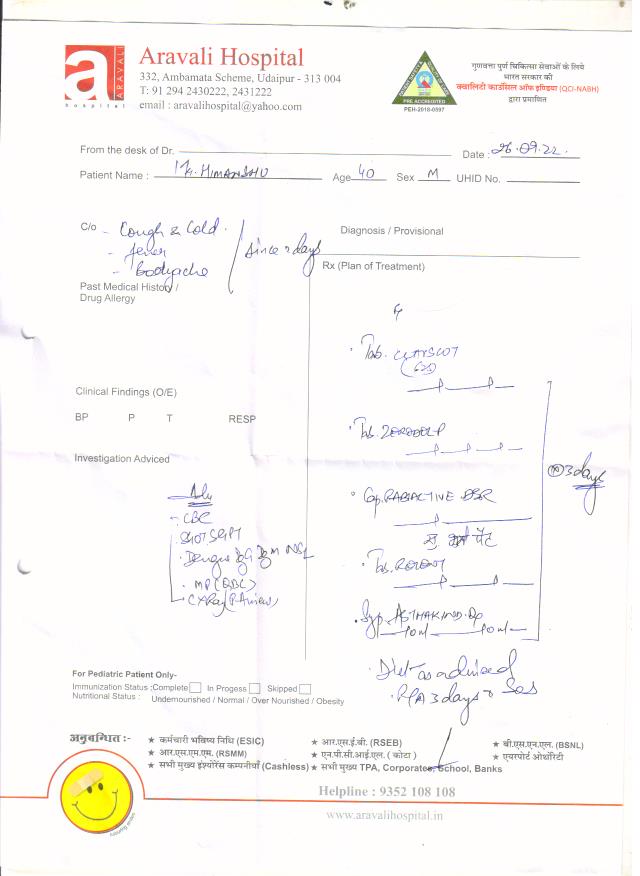 a
ARAVALI
hospital
Aravali Hospital
332, Ambamata Scheme, Udaipur - 313 004
T: 91 294 2430222, 2431222
email : aravalihospital@yahoo.com
PRE ACCREDITED
PEH-2018-0597
गुणवत्ता पूर्ण चिकित्सा सेवाओं के लिये
भारत सरकार की
क्वालिटी काउंसिल ऑफ इण्डिया (QCI-NABH)
द्वारा प्रमाणित
From the desk of Dr.
Date : 26.09.22.
Patient Name : Mr. HIMANSHU Age 40 Sex M UHID No.
C/o - Cough & Cold.
- fever
- Bodyache
since 2 days
Diagnosis / Provisional
Rx (Plan of Treatment)
Past Medical History /
Drug Allergy
Clinical Findings (O/E)
BP P T RESP
Investigation Adviced
Adv
- CBC
SGOT SGPT
Dengue IgG IgM NS1
MP (QBC)
CXRay (PA view)
Tab.
(625)
Tab. ZERODOL P
Cap. RABIACTIVE DSR
पेट
Tab.
Syp. ASTHAKIND Dx
10ml 10ml
3 days
Diet as advised
3 days SOS
For Pediatric Patient Only-
Immunization Status :Complete In Progess Skipped
Nutritional Status : Undernourished / Normal / Over Nourished / Obesity
अनुबन्धित :-
★ कर्मचारी भविष्य निधि (ESIC) ★ आर.एस.ई.बी. (RSEB) ★ बी.एस.एन.एल. (BSNL)
★ आर.एस.एम.एम. (RSMM) ★ एन.पी.सी.आई.एल. ( कोटा ) ★ एयरपोर्ट ऑथोरिटी
★ सभी मुख्य इंश्योरेंस कम्पनीयाँ (Cashless) ★ सभी मुख्य TPA, Corporates, School, Banks
Helpline : 9352 108 108
www.aravalihospital.in